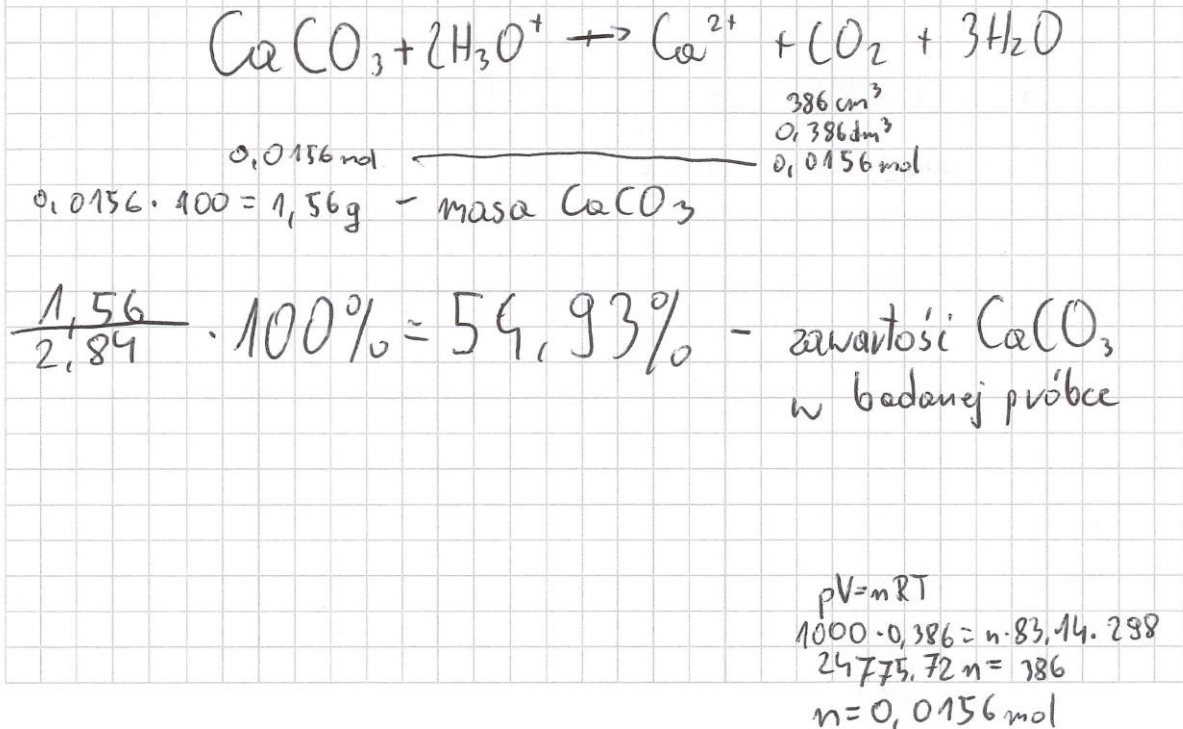 CaCO₃ + 2H₃O⁺ → Ca²⁺ + CO₂ + 3H₂O
386 cm³
0,386 dm³
0,0156 mol ← 0,0156 mol
0,0156 · 100 = 1,56g - masa CaCO₃
1,56/2,84 · 100% = 54,93% - zawartość CaCO₃
w badanej próbce
pV=nRT
1000 · 0,386 = n · 83,14 · 298
24775,72 n = 386
n = 0,0156 mol